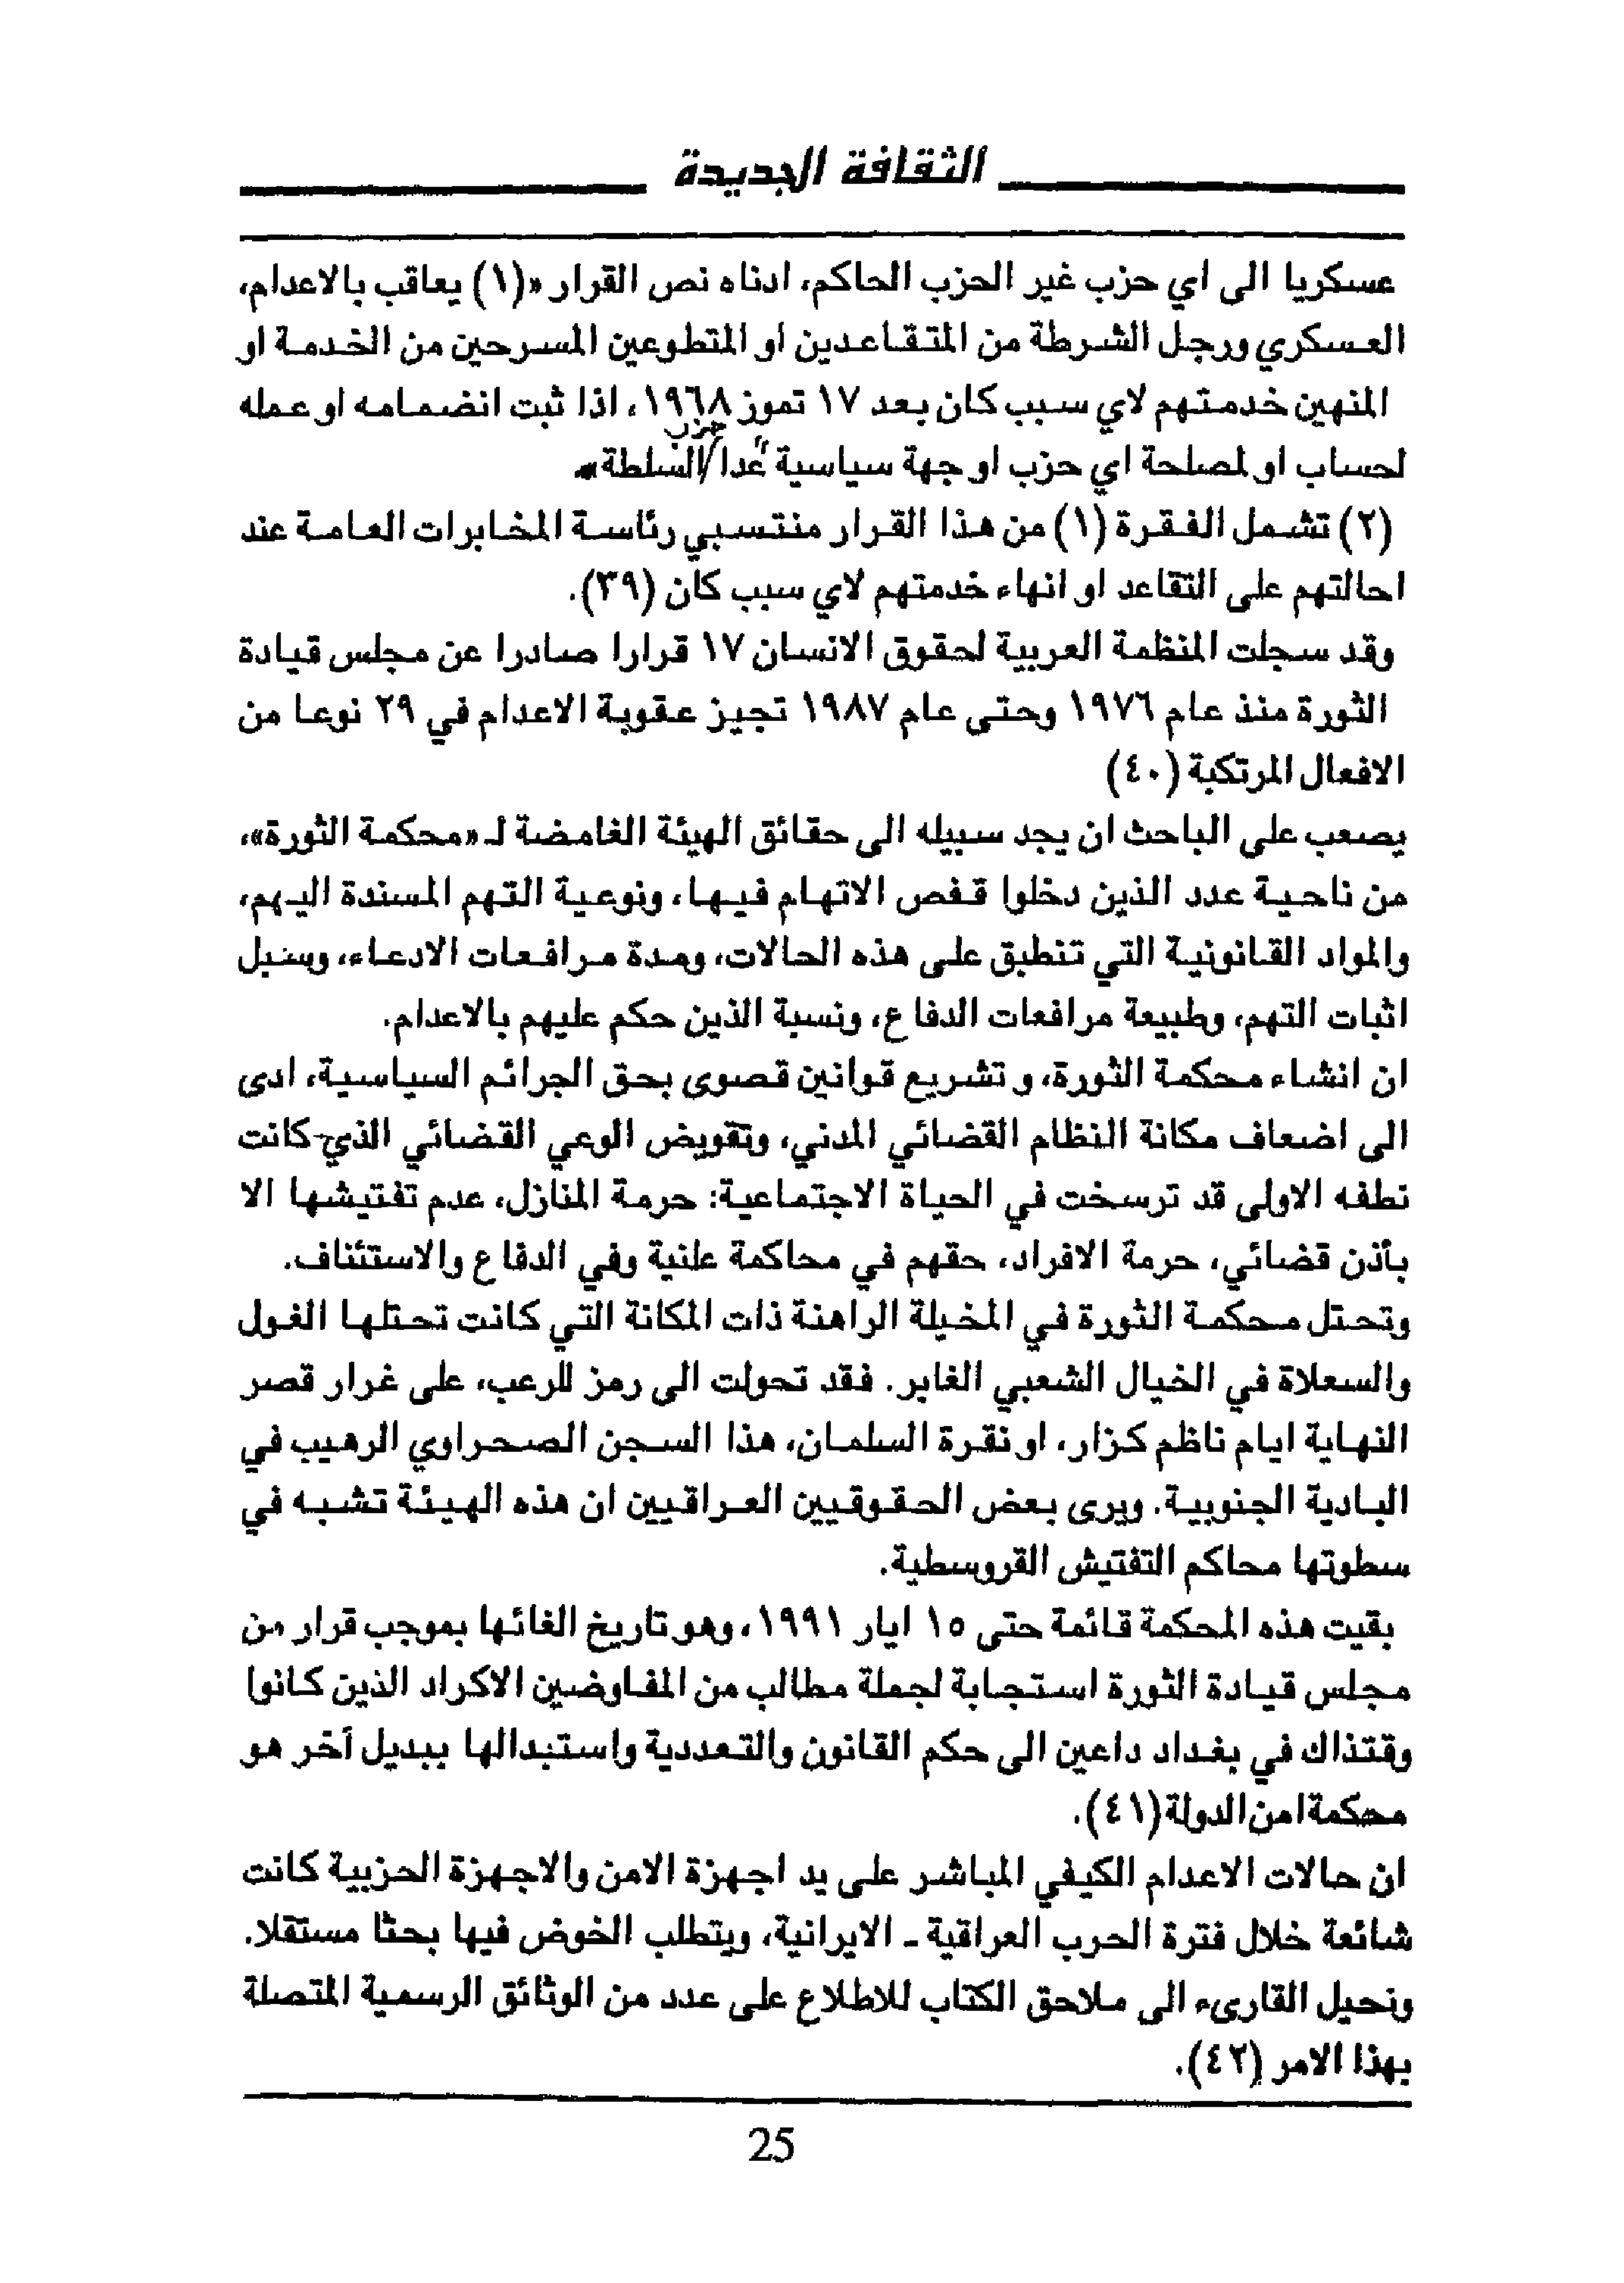 الثقافة الجديدة
عسكريا الى اي حزب غير الحزب الحاكم، ادناه نص القرار «(١) يعاقب بالاعدام،
العسكري ورجل الشرطة من المتقاعدين او المتطوعين المسرحين من الخدمة او
المنهين خدمتهم لاي سبب كان بعد ١٧ تموز ١٩٦٨، اذا ثبت انضمامه او عمله
حزب
لحساب او لمصلحة اي حزب او جهة سياسية عدا/السلطة».
(٢) تشمل الفقرة (١) من هذا القرار منتسبي رئاسة المخابرات العامة عند
احالتهم على التقاعد او انهاء خدمتهم لاي سبب كان (٣٩).
وقد سجلت المنظمة العربية لحقوق الانسان ١٧ قرارا صادرا عن مجلس قيادة
الثورة منذ عام ١٩٧٦ وحتى عام ١٩٨٧ تجيز عقوبة الاعدام في ٢٩ نوعا من
الافعال المرتكبة (٤٠)
يصعب على الباحث ان يجد سبيله الى حقائق الهيئة الغامضة لـ «محكمة الثورة»،
من ناحية عدد الذين دخلوا قفص الاتهام فيها، ونوعية التهم المسندة اليهم،
والمواد القانونية التي تنطبق على هذه الحالات، ومدة مرافعات الادعاء، وسبل
اثبات التهم، وطبيعة مرافعات الدفاع، ونسبة الذين حكم عليهم بالاعدام.
ان انشاء محكمة الثورة، و تشريع قوانين قصوى بحق الجرائم السياسية، ادى
الى اضعاف مكانة النظام القضائي المدني، وتقويض الوعي القضائي الذي كانت
نطفه الاولى قد ترسخت في الحياة الاجتماعية: حرمة المنازل، عدم تفتيشها الا
بأذن قضائي، حرمة الافراد، حقهم في محاكمة علنية وفي الدفاع والاستئناف.
وتحتل محكمة الثورة في المخيلة الراهنة ذات المكانة التي كانت تحتلها الغول
والسعلاة في الخيال الشعبي الغابر. فقد تحولت الى رمز للرعب، على غرار قصر
النهاية ايام ناظم كزار، او نقرة السلمان، هذا السجن الصحراوي الرهيب في
البادية الجنوبية. ويرى بعض الحقوقيين العراقيين ان هذه الهيئة تشبه في
سطوتها محاكم التفتيش القروسطية.
بقيت هذه المحكمة قائمة حتى ١٥ ايار ١٩٩١، وهو تاريخ الغائها بموجب قرار من
مجلس قيادة الثورة استجابة لجملة مطالب من المفاوضين الاكراد الذين كانوا
وقتذاك في بغداد داعين الى حكم القانون والتعددية واستبدالها ببديل آخر هو
محكمة امن الدولة (٤١).
ان حالات الاعدام الكيفي المباشر على يد اجهزة الامن والاجهزة الحزبية كانت
شائعة خلال فترة الحرب العراقية ـ الايرانية، ويتطلب الخوض فيها بحثا مستقلا.
ونحيل القارىء الى ملاحق الكتاب للاطلاع على عدد من الوثائق الرسمية المتصلة
بهذا الامر (٤٢).
25